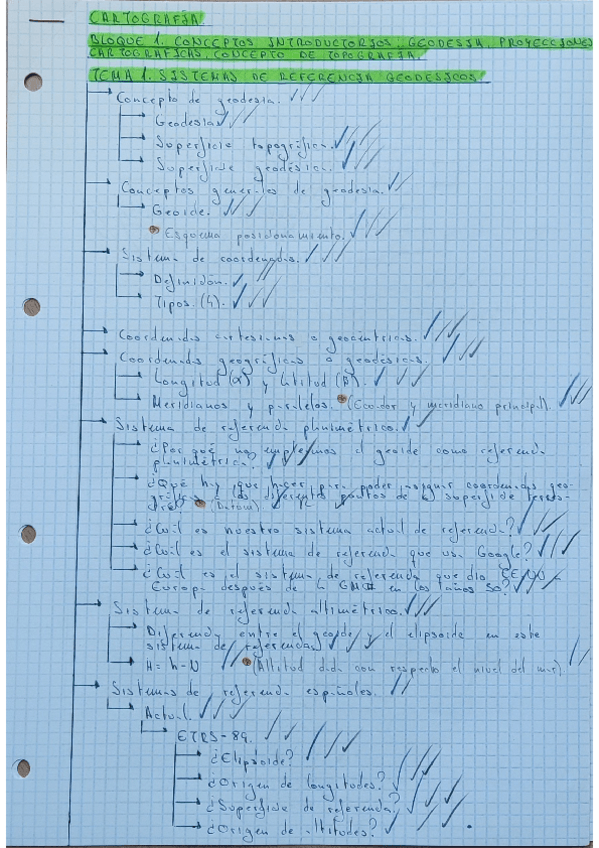 CARTOGRAFÍA
BLOQUE 1. CONCEPTOS INTRODUCTORIOS. GEODESIA, PROYECCIONES
CARTOGRÁFICAS, CONCEPTO DE TOPOGRAFÍA.
TEMA 1. SISTEMAS DE REFERENCIA GEODÉSICOS.
Concepto de geodesia.
Geodesia
Superficie topográfica.
Superficie geodésica.
Conceptos generales de geodesia.
Geoide.
Esquema posicionamiento.
Sistema de coordenadas.
Definición.
Tipos. (4).
Coordenadas cartesianas o geocéntricas.
Coordenadas geográficas o geodésicas.
Longitud (α) y latitud (β).
Meridianos y paralelos. (Ecuador y meridiano principal).
Sistema de referencia planimétrico.
¿Por qué no empleamos el geoide como referencia
planimétrica?
¿Qué hay que hacer para poder asignar coordenadas geo-
gráficas a los diferentes puntos de la superficie terres-
tre? (Datum)
¿Cuál es nuestro sistema actual de referencia?
¿Cuál es el sistema de referencia que usa Google?
¿Cuál es el sistema de referencia que dio EE.UU a
Europa después de la GM II en los años 50?
Sistema de referencia altimétrico.
Diferencia entre el geoide y el elipsoide en este
sistema de referencia.
H = h - N (Altitud dada con respecto el nivel del mar)
Sistemas de referencia españoles.
Actual.
ETRS-89.
¿Elipsoide?
¿Origen de longitudes?
¿Superficie de referencia?
¿Origen de altitudes?